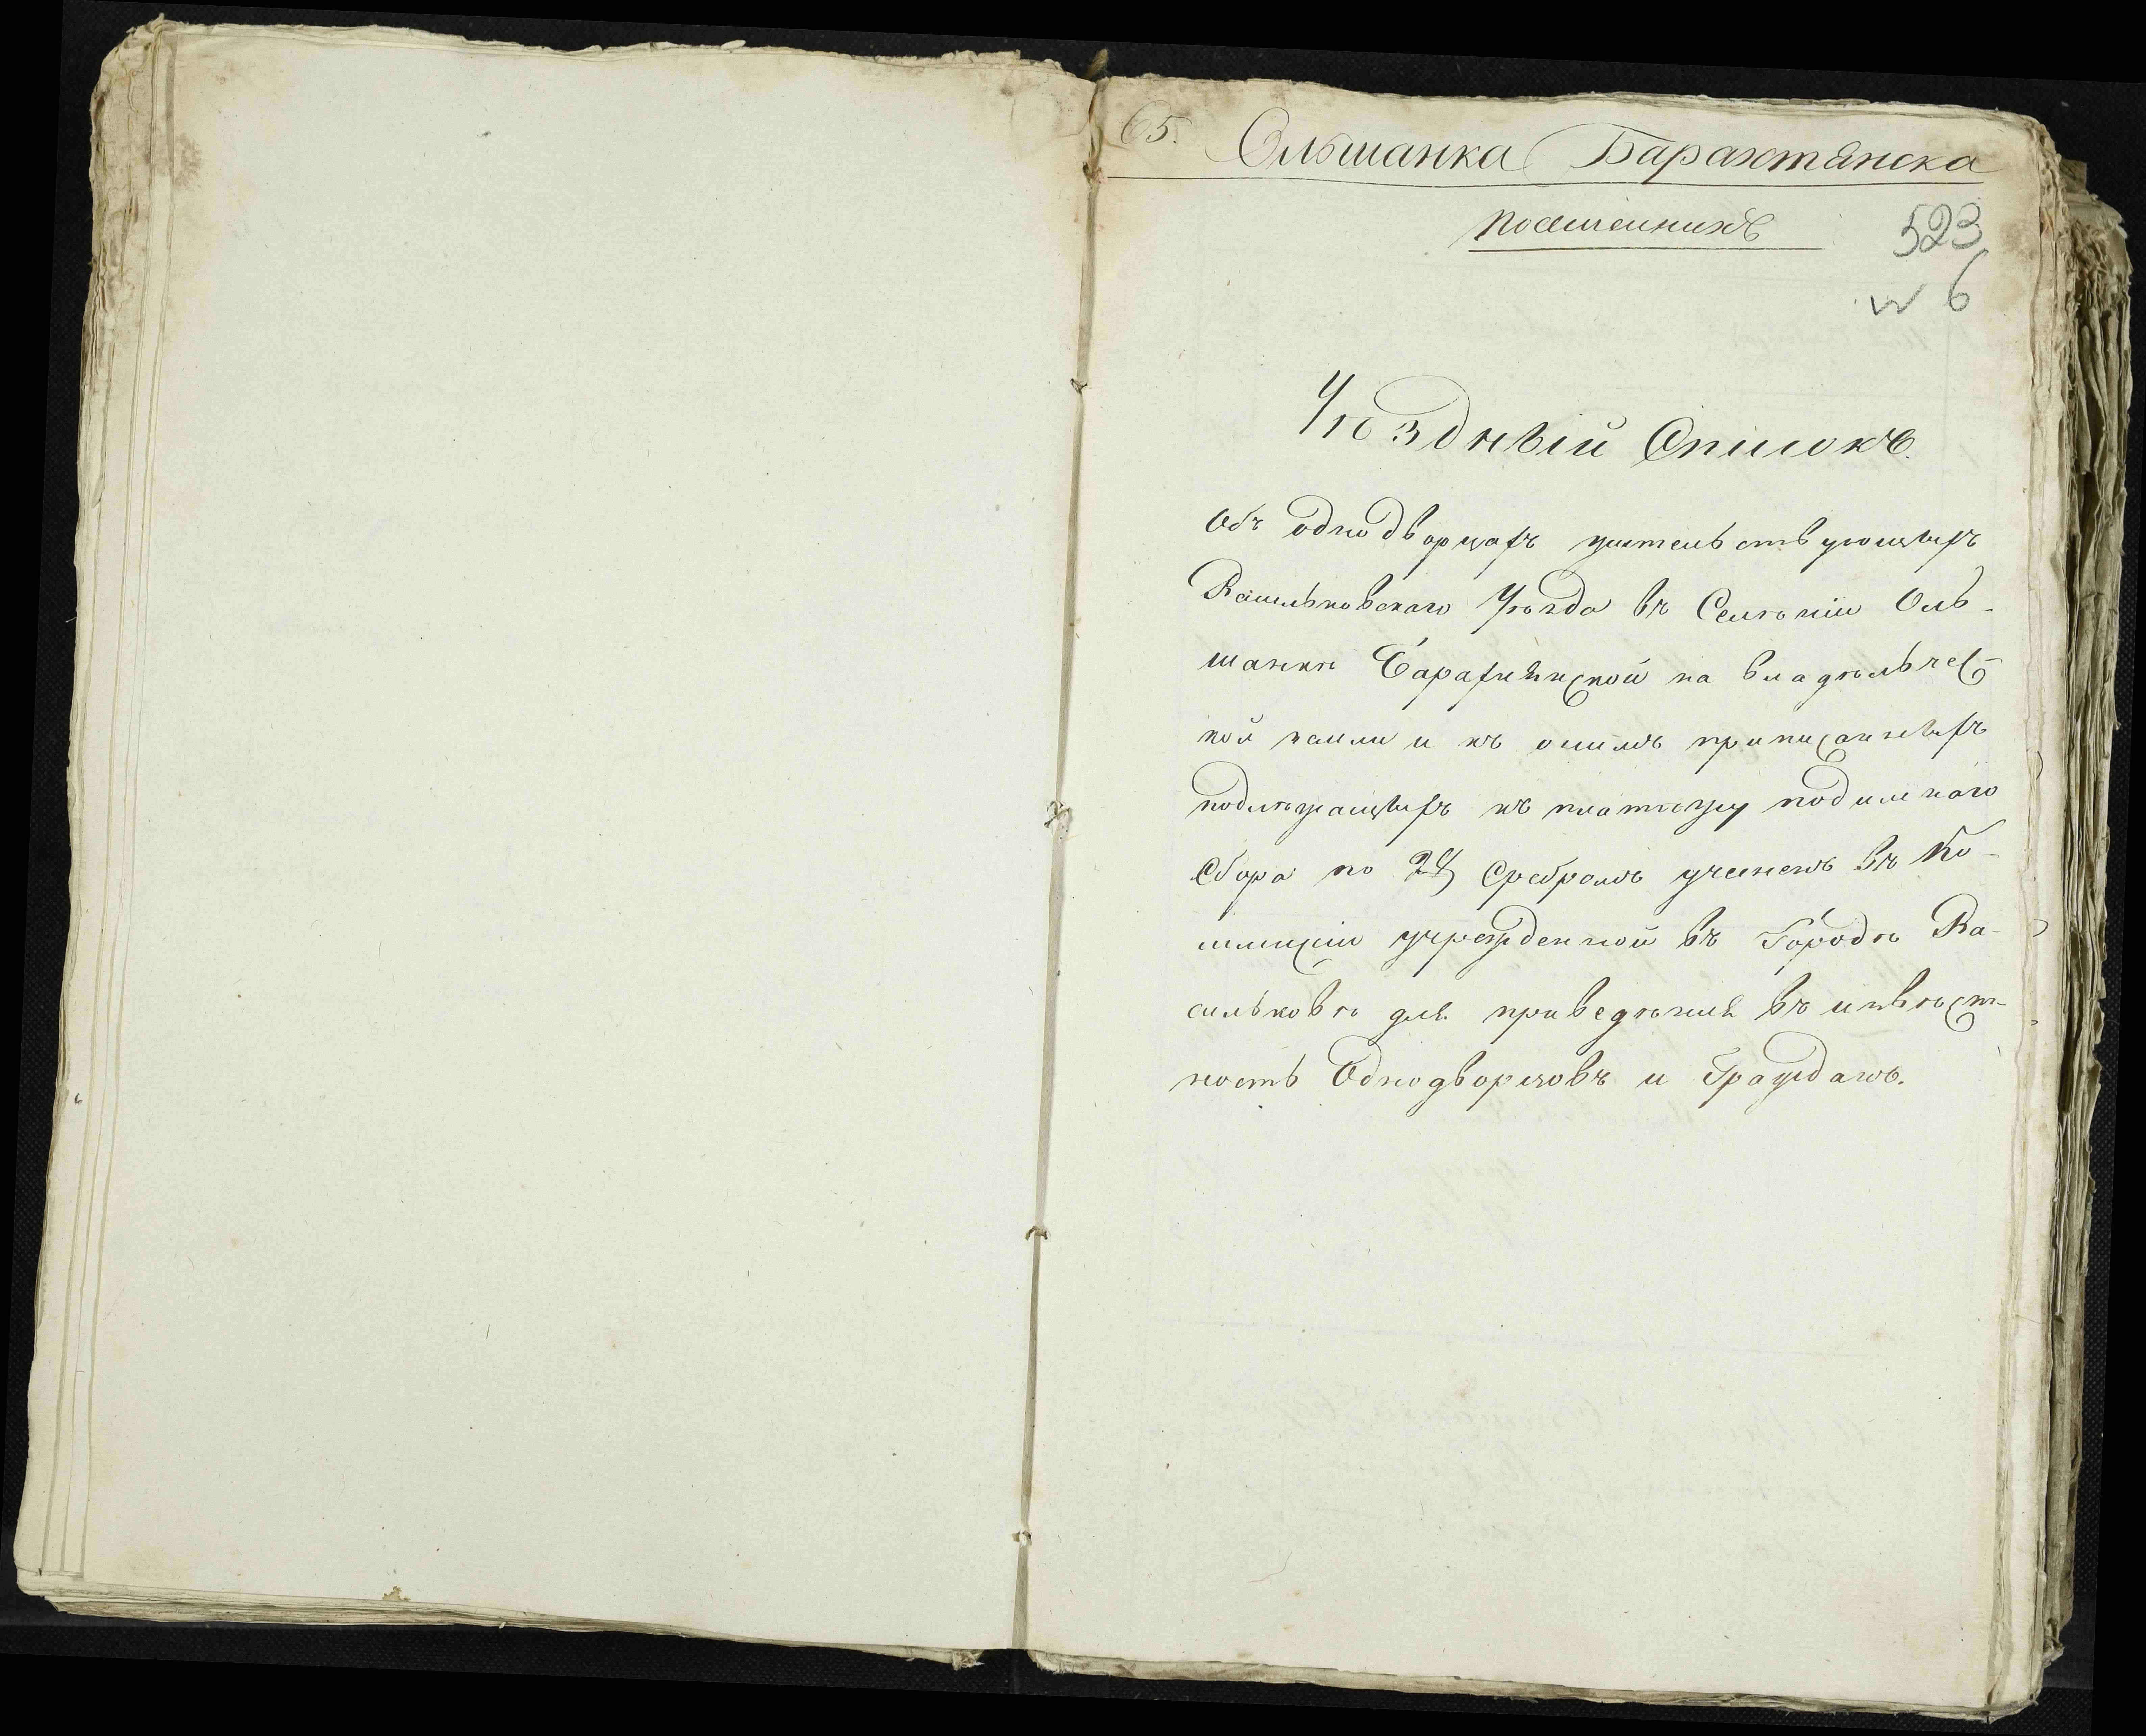 65. Ольшанка Барахтянска
523
№ 6
Уѣздный Списокъ.
Объ однодворцахъ жительствующихъ
Васильковскаго Уѣзда въ Селѣнiи Оль-
шанкѣ Барахтянской на владѣльчес-
кой земли и къ онимъ приписанныхъ
подлѣжащихъ къ платѣжу подимнаго
Сбора по Сребромъ учиненъ въ Ко-
миссiи учрежденной въ Городѣ Ва-
сильковѣ для приведѣнiя въ извѣст-
ность Однодворцовъ и Гражданъ.